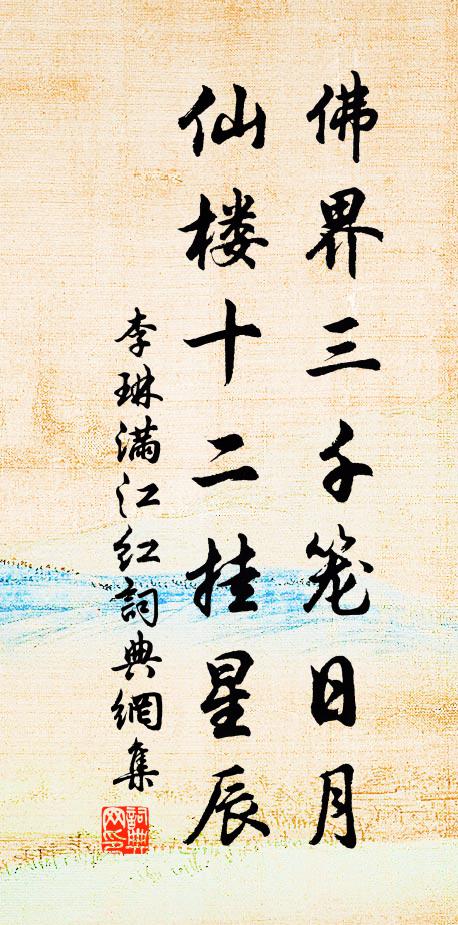 佛界三千笼日月
仙楼十二挂星辰
李琳满江红詞典網集
詞典网印